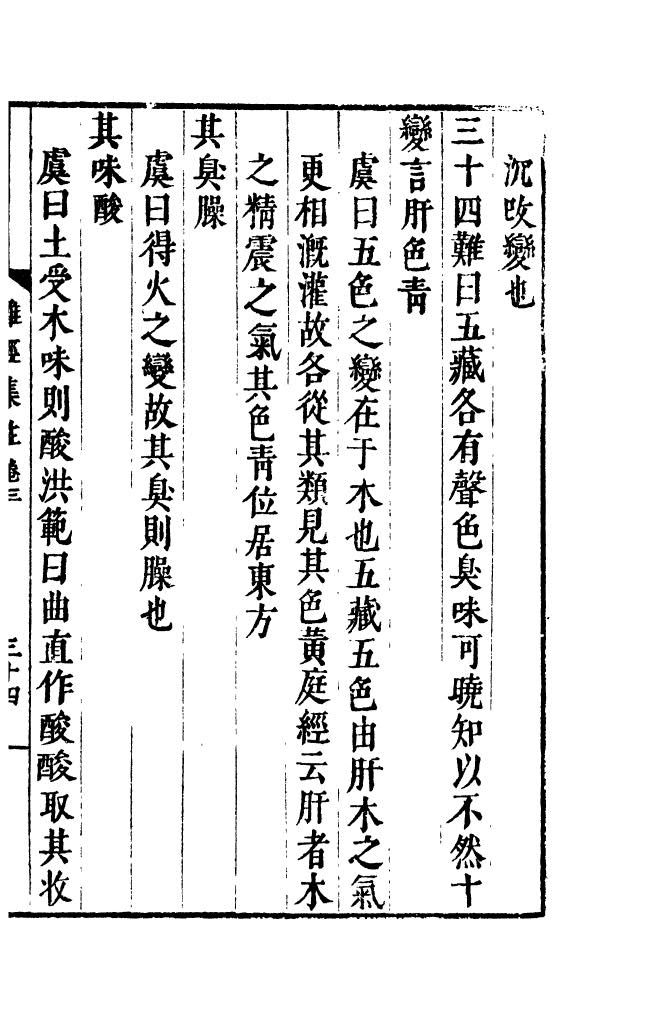 沉改變也
三十四難曰五藏各有聲色臭味可曉知以不然十
變言肝色青
虞曰五色之變在于木也五藏五色由肝木之氣
更相溉灌故各從其類見其色黄庭經云肝者木
之精震之氣其色青位居東方
其臭臊
虞曰得火之變故其臭則臊也
其味酸
虞曰土受木味則酸洪範曰曲直作酸酸取其收
難經集註卷三
三十四